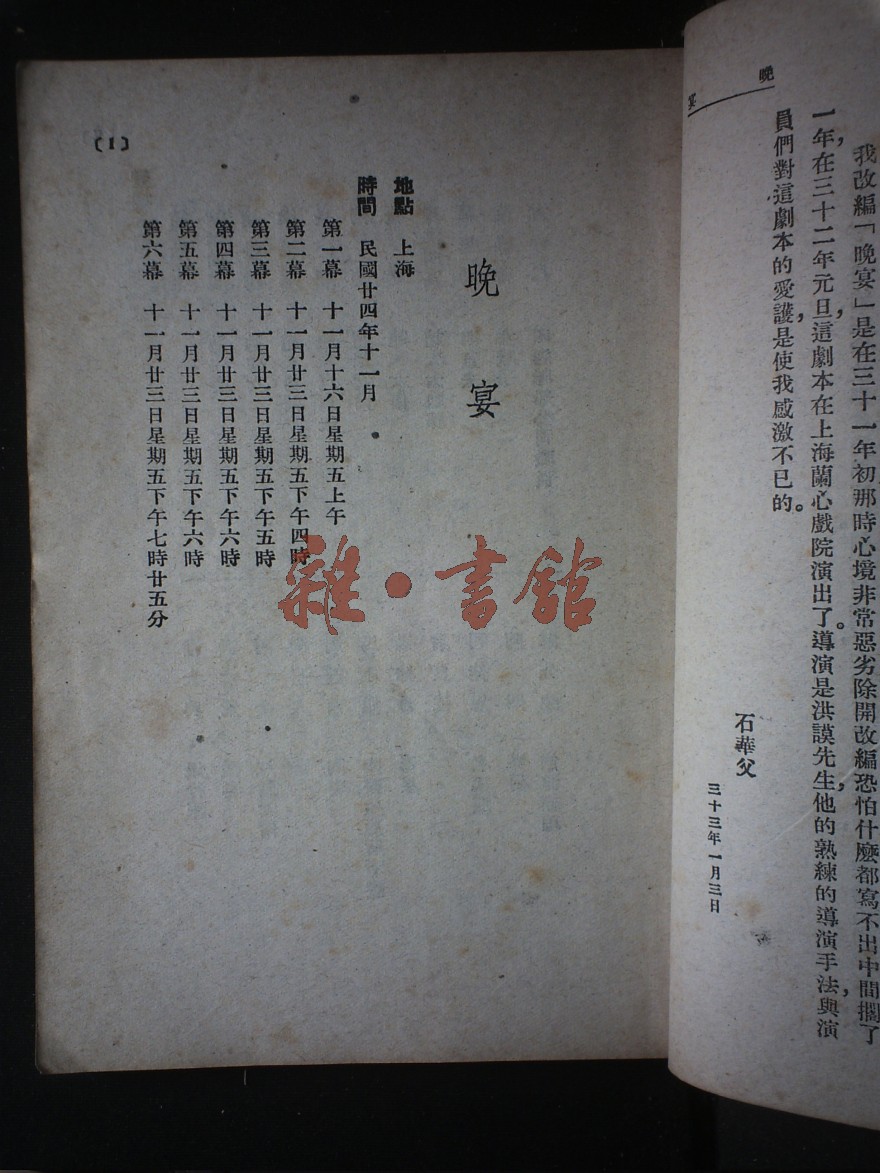 晚宴
我改編「晚宴」是在三十一年初，那時心境非常惡劣，除開改編恐怕什麼都寫不出，中間擱了
一年，在三十二年元旦，這劇本在上海蘭心戲院演出了。導演是洪謨先生，他的熟練的導演手法與演
員們對這劇本的愛護，是使我感激不已的。
石華父
三十三年一月三日
晚宴
地點 上海
時間 民國廿四年十一月
第一幕 十一月十六日星期五上午
第二幕 十一月廿三日星期五下午四時
第三幕 十一月廿三日星期五下午五時
第四幕 十一月廿三日星期五下午六時
第五幕 十一月廿三日星期五下午六時
第六幕 十一月廿三日星期五下午七時廿五分
(1)
雜·書館